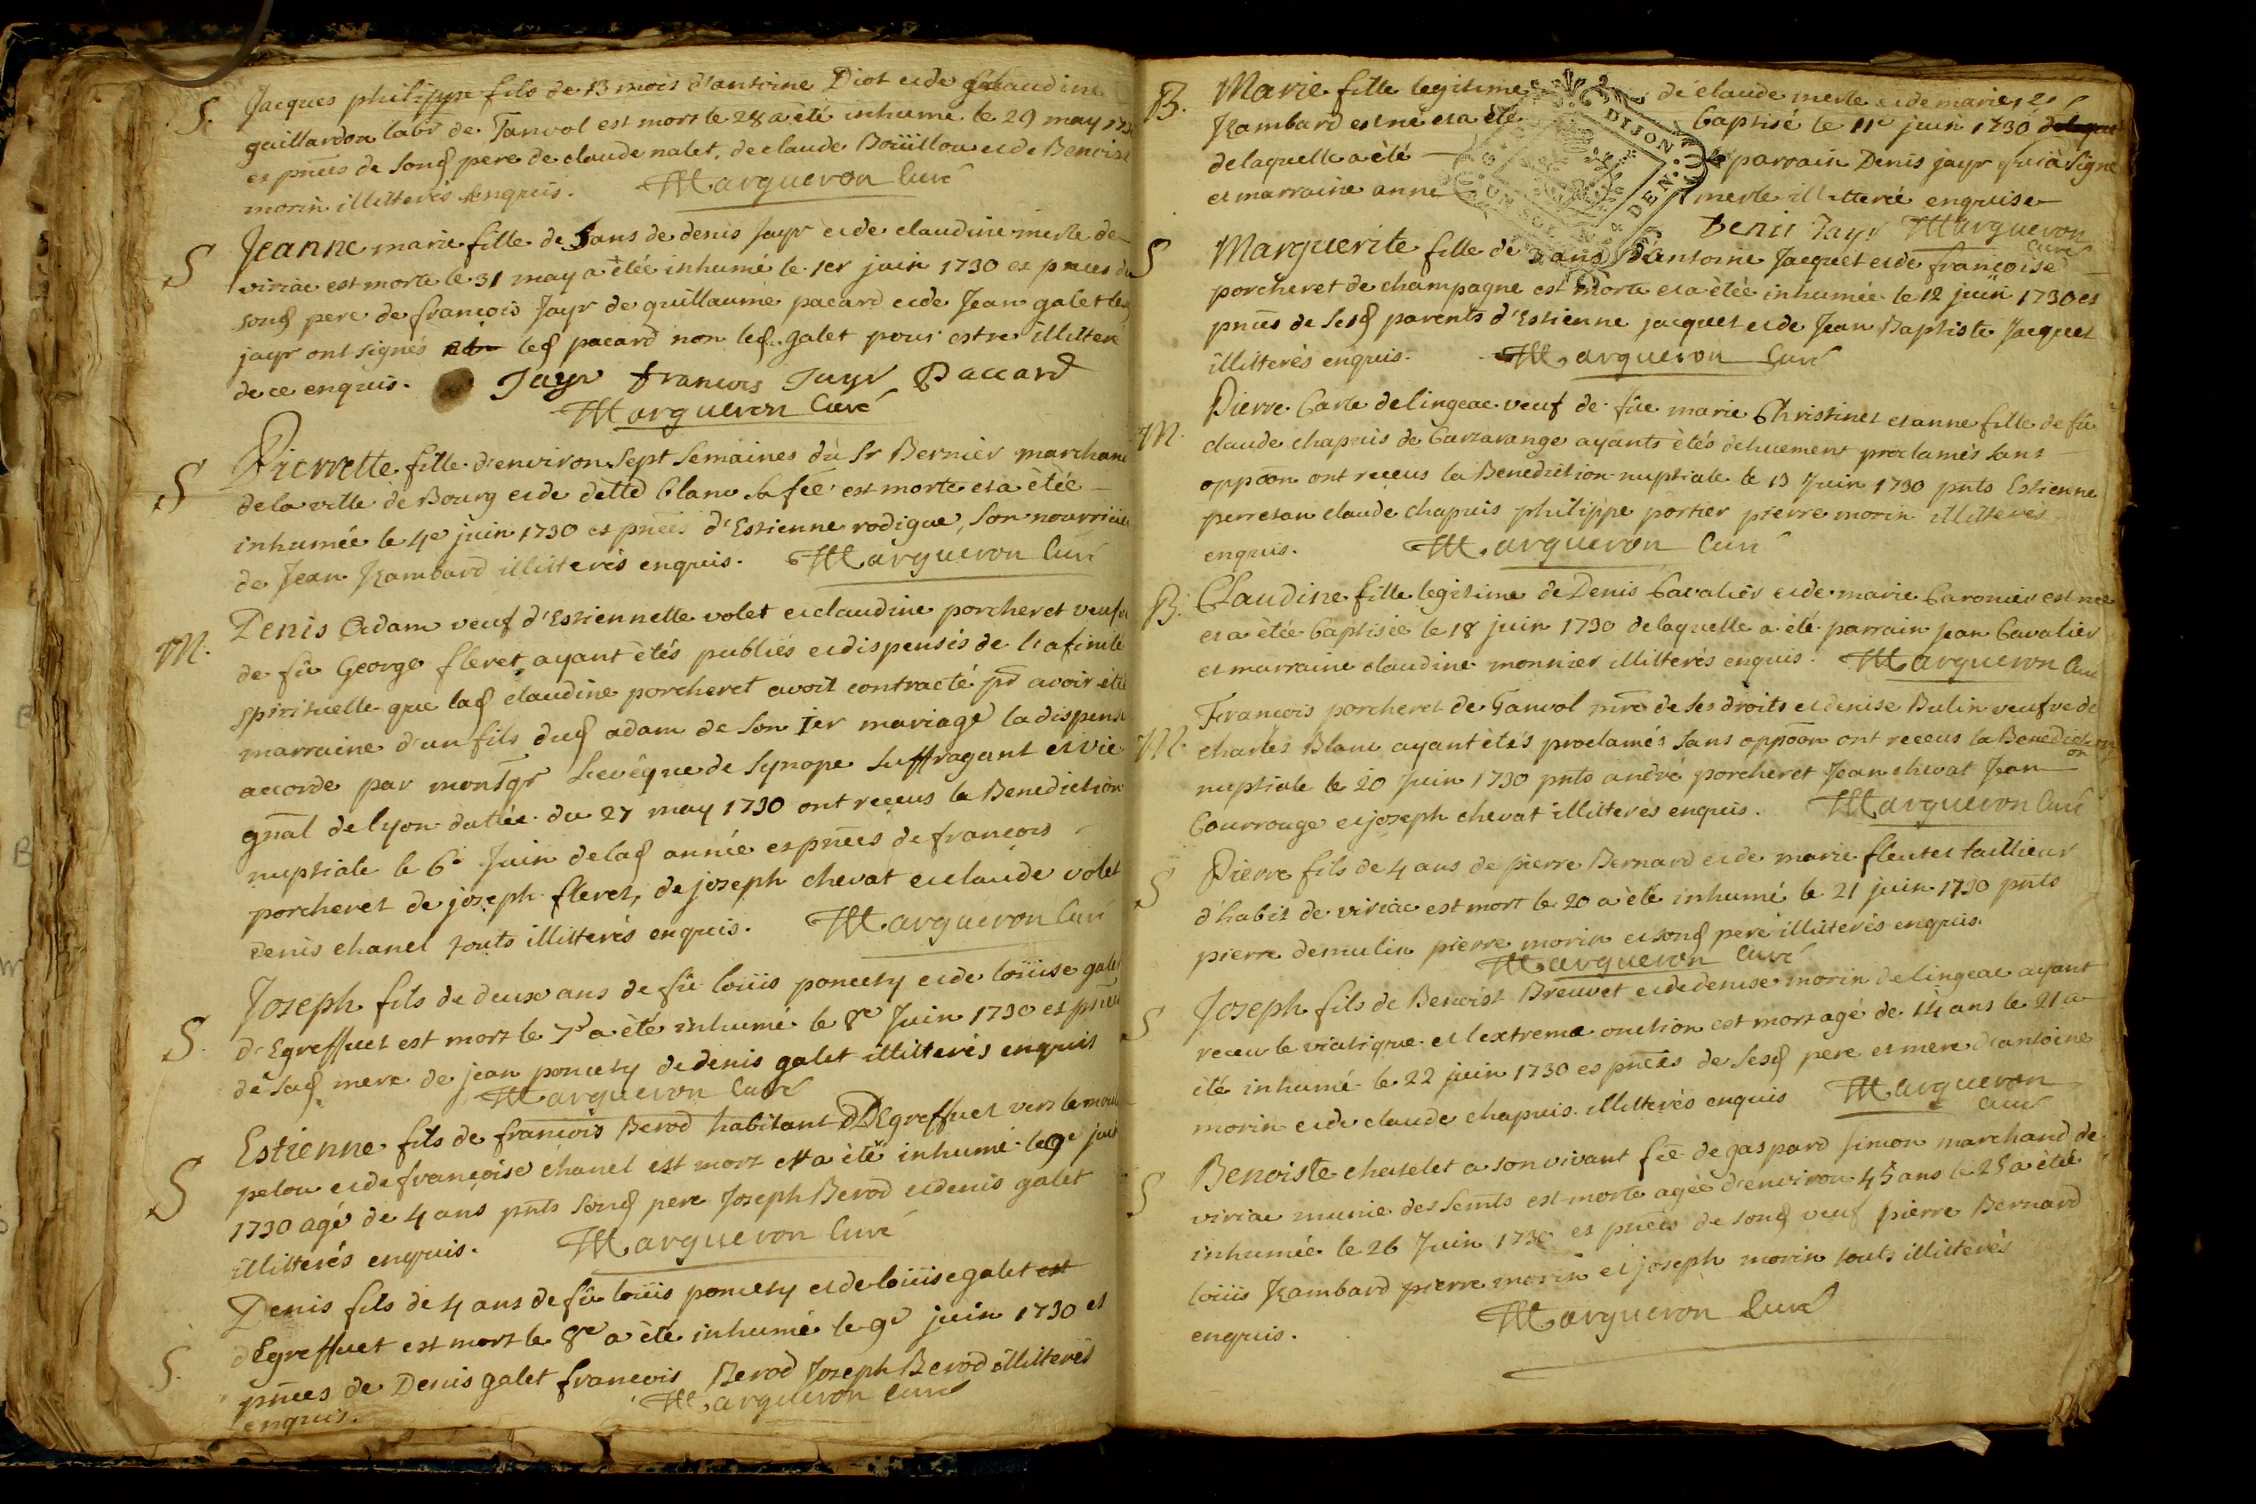 S. Jacques philippe fils de 13 mois d'antoine Diot et de claudine
guillardon labr de Tanvol est mort le 28 a été inhumé le 29 may
es pnces de sond pere de claude nalet, de claude Boüillou et de Benoist
morin illitterés enquis. Marqueron Curé
S Jeanne marie fille de 5 ans de denis Jayr et de claudine merle de
viriac est morte le 31 may a étée inhumé le 1er juin 1730 es pnces de
sond pere de francois Jayr de guillaume pacard et de Jean galet les
jayr ont signés led pacard non led galet pour estre illitteré
de ce enquis. Jayr francois Jayr Paccard
Marqueron Curé
S Pierrette fille d'environ sept semaines du Sr Bernier marchand
de la ville de Bourg et de dlle Blanc sa fee est morte et a étée
inhumée le 4e juin 1730 es pnces d'Estienne rodigue, son nourricier
de Jean Rambard illitterés enquis. Marqueron Curé
M. Denis Adam veuf d'Estiennette volet et claudine porcheret veufve
de fû George fleret ayant étés publiés et dispensés de l'afinité
spirituelle que lad claudine porcheret avoit contracté pr avoir été
marraine d'un fils dud adam de son 1er mariage la dispense
accorde par monsgr L'evêque de Synope suffragant et vic
gnal de lyon datée du 27 may 1730 ont reçeus la Benediction
nuptiale le 6e Juin de lad année es pnces de francois
porcheret de joseph fleret, de joseph chevat et claude volet
denis chanel touts illitterés enquis. Marqueron Curé
S. Joseph fils de deux ans de fû loüis poncety et de loüise galet
d'Egreffuet est mort le 7e a été inhumé le 8e Juin 1730 es pnces
de sad mere de jean poncety de denis galet illitterés enquis
Marqueron Curé
S Estienne fils de francois Berod habitant D'Egreffuet vers le moulin
pelou et de françoise chanel est mort et a été inhumé le 9e juin
1730 agé de 4 ans pnts sond pere Joseph Berod et denis galet
illitterés enquis. Marqueron Curé
S. Denis fils de 4 ans de fû loüis poncety et de loüise galet est
d'Egreffuet est mort le 8e a été inhumé le 9e juin 1730 es
pnces de Denis galet francois Berod Joseph Berod illitterés
enquis. Marqueron Curé
B. Marie fille legitime de claude merle et de marie
Rambard est né et a été baptisé le 11e juin 1730
de laquelle a été parrain Denis jayr qui a signé
et marraine anne merle illitteré enquise
Denis Jayr Marqueron
Curé
DIJON
S Marguerite fille de 3 ans d'antoine Jacquet et de françoise
porcheret de champagne est morte et a étée inhumée le 12 juin 1730 es
pnces de sesd parents d'Estienne jacquet et de Jean Baptiste Jacquet
illitterés enquis. Marqueron Curé
M. Pierre Carle de lingeac veuf de fûe marie Christinet et anne fille de fû
claude chapuis de Carzarange ayants étés dehuement proclamés sans
oppoon ont receus la Benediction nuptiale le 13 Juin 1730 pnts Estienne
perretan claude chapuis philippe portier pierre morin illitterés
enquis. Marqueron Curé
B. Claudine fille legitime de Denis Cavalier et de marie Caronier est née
et a étée baptisée le 18 juin 1730 de laquelle a été parrain jean Cavalier
et marraine claudine monnier illitterés enquis. Marqueron Curé
M. Francois porcheret de Tanvol mre de ses droits et denise Bulin veufve de
charles Blanc ayant étés proclamés sans oppoon ont receus la Benediction
nuptiale le 20 Juin 1730 pnts andré porcheret Jean chevat Jean
Courrouge et joseph chevat illitterés enquis. Marqueron Curé
S Pierre fils de 4 ans de pierre Bernard et de marie fleutet taillieur
d'habit de viriac est mort le 20 a été inhumé le 21 juin 1730 pnts
pierre demulin pierre morin et sond pere illitterés enquis.
Marqueron Curé
S Joseph fils de Benoist Breuvet et de denise morin de lingeac ayant
receu le viatique et l'extreme onction est mort agé de 14 ans le 21 a
été inhumé le 22 juin 1730 es pnces de sesd pere et mere d'antoine
morin et de claude chapuis illitterés enquis Marqueron
Curé
S Benoiste chatelet a son vivant fee de gaspard simon marchand de
viriac munie des semts est morte agée d'environ 45 ans le 25 a été
inhumée le 26 Juin 1730 es pnces de sond veuf pierre Bernard
loüis Rambard pierre morin et joseph morin touts illitterés
enquis. Marqueron Curé